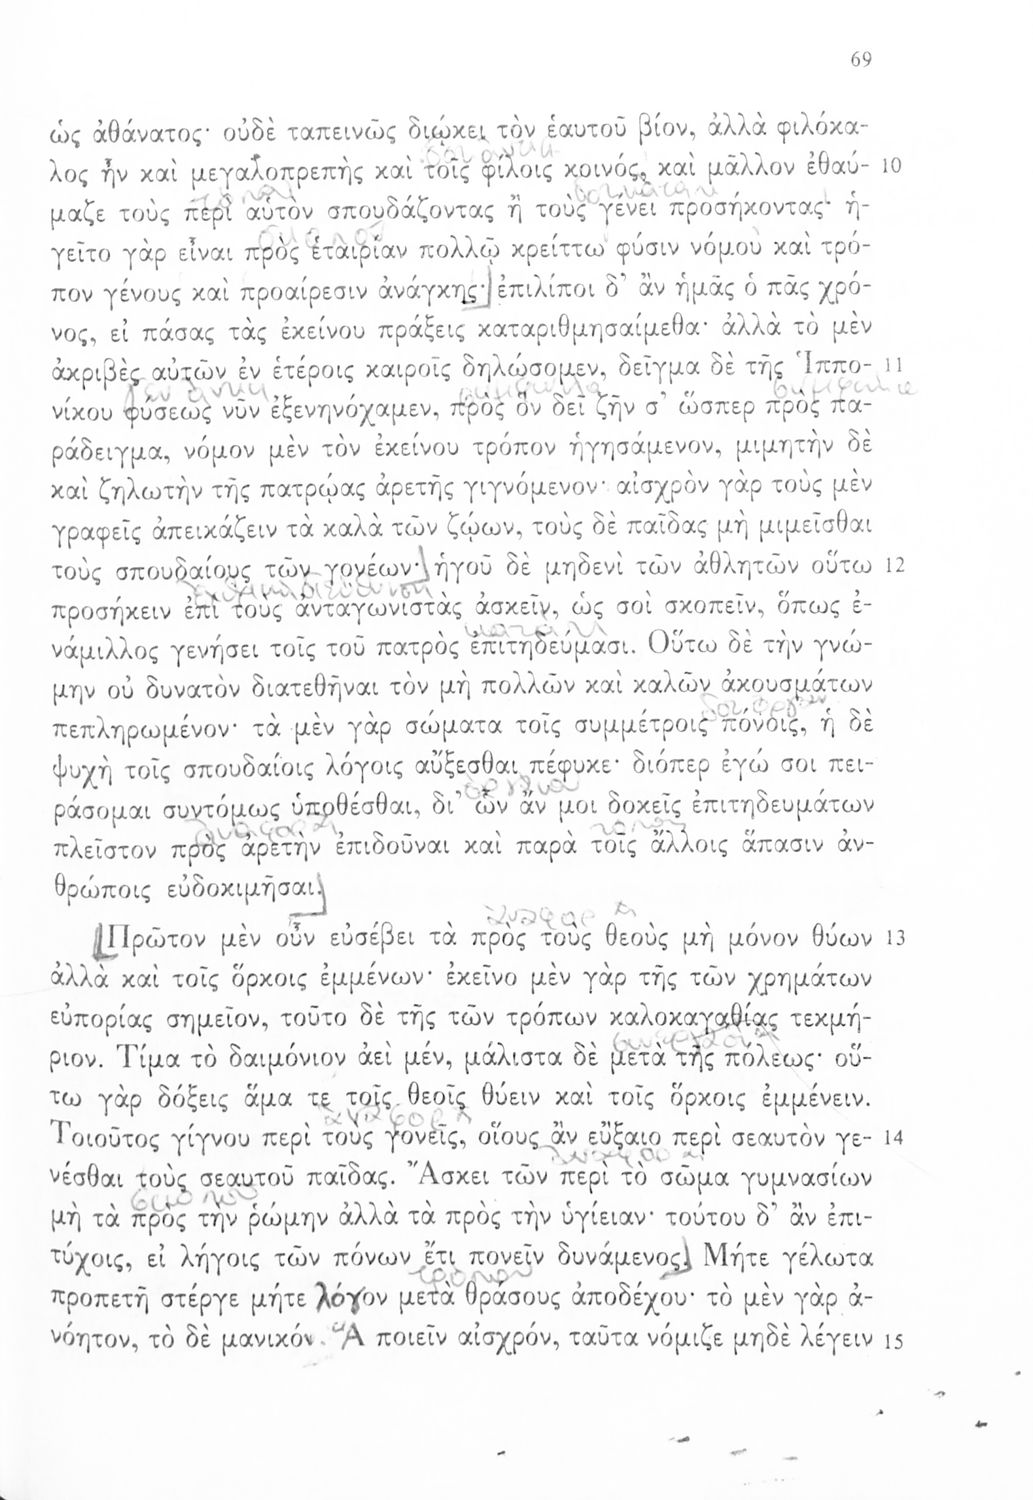 69
ὡς ἀθάνατος· οὐδὲ ταπεινῶς διῴκει τὸν ἑαυτοῦ βίον, ἀλλὰ φιλόκα-
λος ἦν καὶ μεγαλοπρεπὴς καὶ τοῖς φίλοις κοινός, καὶ μᾶλλον ἐθαύ- 10
μαζε τοὺς περὶ αὑτὸν σπουδάζοντας ἢ τοὺς γένει προσήκοντας· ἡ-
γεῖτο γὰρ εἶναι πρὸς ἑταιρίαν πολλῷ κρείττω φύσιν νόμου καὶ τρό-
πον γένους καὶ προαίρεσιν ἀνάγκης· ἐπιλίποι δ’ ἂν ἡμᾶς ὁ πᾶς χρό-
νος, εἰ πάσας τὰς ἐκείνου πράξεις καταριθμησαίμεθα· ἀλλὰ τὸ μὲν
ἀκριβὲς αὐτῶν ἐν ἑτέροις καιροῖς δηλώσομεν, δεῖγμα δὲ τῆς Ἱππο- 11
νίκου φύσεως νῦν ἐξενηνόχαμεν, πρὸς ὃν δεῖ ζῆν σ’ ὥσπερ πρὸς πα-
ράδειγμα, νόμον μὲν τὸν ἐκείνου τρόπον ἡγησάμενον, μιμητὴν δὲ
καὶ ζηλωτὴν τῆς πατρῴας ἀρετῆς γιγνόμενον· αἰσχρὸν γὰρ τοὺς μὲν
γραφεῖς ἀπεικάζειν τὰ καλὰ τῶν ζῴων, τοὺς δὲ παῖδας μὴ μιμεῖσθαι
τοὺς σπουδαίους τῶν γονέων· ἡγοῦ δὲ μηδενὶ τῶν ἀθλητῶν οὕτω 12
προσήκειν ἐπὶ τοὺς ἀνταγωνιστὰς ἀσκεῖν, ὡς σοὶ σκοπεῖν, ὅπως ἐ-
νάμιλλος γενήσει τοῖς τοῦ πατρὸς ἐπιτηδεύμασι. Οὕτω δὲ τὴν γνώ-
μην οὐ δυνατὸν διατεθῆναι τὸν μὴ πολλῶν καὶ καλῶν ἀκουσμάτων
πεπληρωμένον· τὰ μὲν γὰρ σώματα τοῖς συμμέτροις πόνοις, ἡ δὲ
ψυχὴ τοῖς σπουδαίοις λόγοις αὔξεσθαι πέφυκε· διόπερ ἐγώ σοι πει-
ράσομαι συντόμως ὑποθέσθαι, δι’ ὧν ἄν μοι δοκεῖς ἐπιτηδευμάτων
πλεῖστον πρὸς ἀρετὴν ἐπιδοῦναι καὶ παρὰ τοῖς ἄλλοις ἅπασιν ἀν-
θρώποις εὐδοκιμῆσαι.
Πρῶτον μὲν οὖν εὐσέβει τὰ πρὸς τοὺς θεοὺς μὴ μόνον θύων 13
ἀλλὰ καὶ τοῖς ὅρκοις ἐμμένων· ἐκεῖνο μὲν γὰρ τῆς τῶν χρημάτων
εὐπορίας σημεῖον, τοῦτο δὲ τῆς τῶν τρόπων καλοκαγαθίας τεκμή-
ριον. Τίμα τὸ δαιμόνιον ἀεὶ μέν, μάλιστα δὲ μετὰ τῆς πόλεως· οὕ-
τω γὰρ δόξεις ἅμα τε τοῖς θεοῖς θύειν καὶ τοῖς ὅρκοις ἐμμένειν.
Τοιοῦτος γίγνου περὶ τοὺς γονεῖς, οἵους ἂν εὔξαιο περὶ σεαυτὸν γε- 14
νέσθαι τοὺς σεαυτοῦ παῖδας. Ἄσκει τῶν περὶ τὸ σῶμα γυμνασίων
μὴ τὰ πρὸς τὴν ῥώμην ἀλλὰ τὰ πρὸς τὴν ὑγίειαν· τούτου δ’ ἂν ἐπι-
τύχοις, εἰ λήγοις τῶν πόνων ἔτι πονεῖν δυνάμενος. Μήτε γέλωτα
προπετῆ στέργε μήτε λόγον μετὰ θράσους ἀποδέχου· τὸ μὲν γὰρ ἀ-
νόητον, τὸ δὲ μανικόν. Ἃ ποιεῖν αἰσχρόν, ταῦτα νόμιζε μηδὲ λέγειν 15